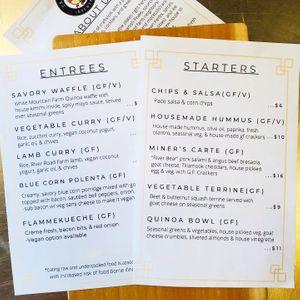 ABOUT
ENTREES
SAVORY WAFFLE (GF/V)
White Mountain Farm Quinoa waffle with
house kimchi inside, spicy mayo sauce, served
over seasonal greens
VEGETABLE CURRY (GF/V)
Rice, zucchini curry, vegan coconut yogurt,
garlic oil, & chives
LAMB CURRY (GF)
Rice, River Road Farm lamb, vegan coconut
yogurt, garlic oil, & chives
BLUE CORN POLENTA (GF)
Creamy, savory blue corn porridge mixed with
topped with bacon, sautéed bell peppers, onion
sub bacon w/ veg
FLAMMEKUECHE (GF)
Crème fresh, bacon bits, & red onion
-Vegan option available
*Eating raw and undercooked food is
with increased risk of food borne
STARTERS
CHIPS & SALSA(GF/V)
Face salsa & corn chips
...$6
HOUSEMADE HUMMUS (GF/V)
House made hummus, olive oil, paprika, fresh
cilantro, seasonal veg & GF crackers
...$10
MINER'S CARTE (GF)
"River Bear" pork salami & angus beef bresaola,
goat cheese, Tillamook cheddar, house pickled
egg & veg, w/ GF Crackers
...$16
VEGETABLE TERRINE(GF)
Beet & butternut squash terrine served with
goat cheese on seasonal greens
...$9
QUINOA BOWL (GF)
Seasonal greens & vegetables, house pickled veg, goat
cheese crumbles, slivered almonds & house vinaigrette
...$11